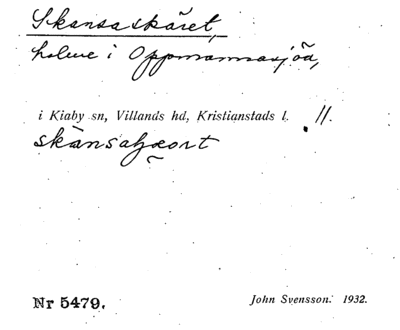 Skansaskäret,
holme i Oppmannasjön,
i Kiaby sn, Villands hd, Kristianstads l. 11.
Nr 5479. John Svensson. 1932.